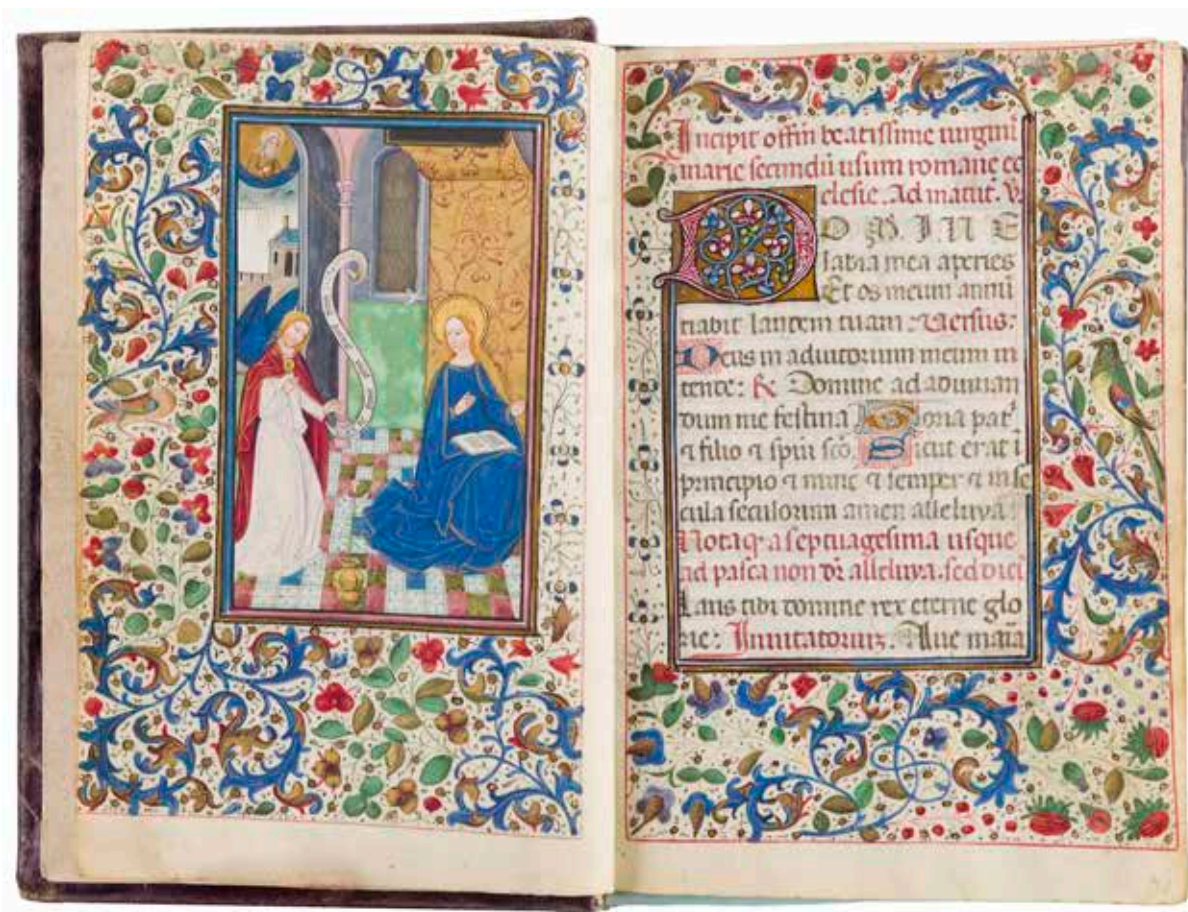 Incipit offm beatissime virgini
marie secundū usum romane ec
clesie. Ad matut. V.
DOMINE
labia mea aperies
Et os meum annū
tiabit laudem tuam: Versus:
Deus in adiutorium meum in
tende: R. Domine ad adiuvan
dum me festina Gloria patri
et filio et spiri sco. Sicut erat ī
principio et nunc et semper et in se
cula seculorum amen alleluya
Nota q a septuagesima usque
ad pasca non dr alleluya. sed dici
Laus tibi domine rex eterne glo
rie: Invitatorium. Ave maria